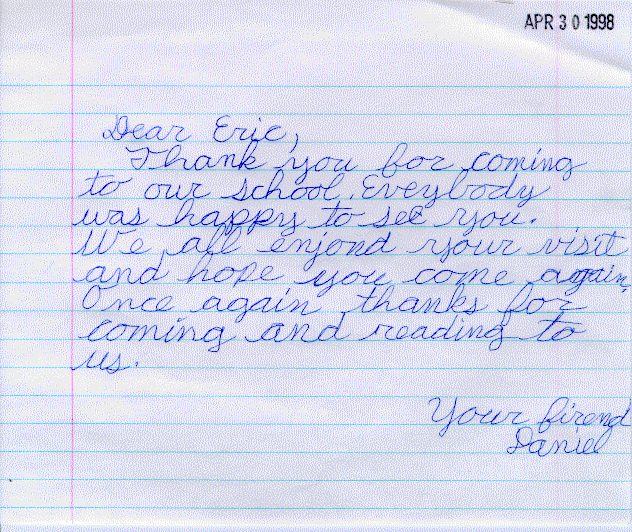 APR 30 1998
Dear Eric,
Thank you for coming
to our school. Eveybody
was happy to see you.
We all enjond your visit
and hope you come again.
Once again thanks for
coming and reading to
us.
Your firend
Daniel